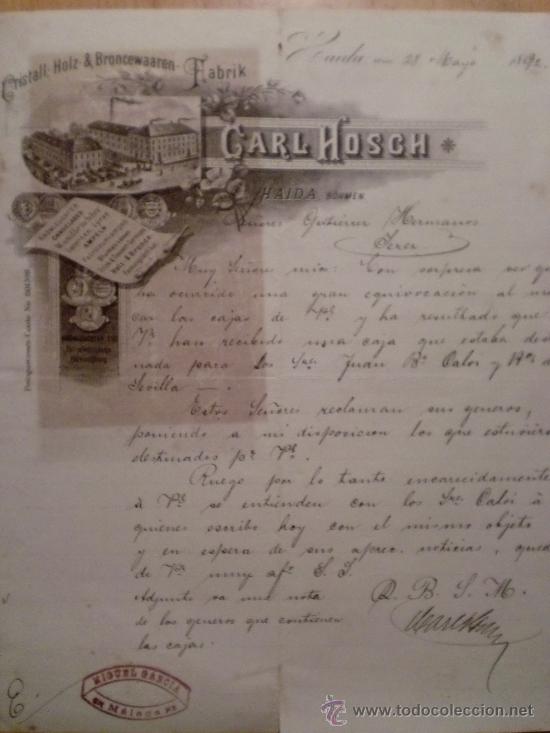 Cristall- Holz- & Broncewaaren- Fabrik
Haida am 28 Mayo 1892.
CARL HOSCH
HAIDA, BÖHMEN
Señores Gutiérrez Hermanos
Jerez
Muy Señores mios: Con sorpresa veo que
ha ocurrido una gran equivocacion al
car las cajas de Vs. y ha resultado que
Vs. han recibido una caja que estaba desti
nada para los Sres. Juan Bta. Caloi y Hos. de
Sevilla —.
Estos Señores reclaman sus generos,
poniendo a mi disposicion los que estuviéron
destinados pa. Vs.
Ruego por lo tanto encarecidamente
à Vs. se entienden con los Sres. Caloi à
quienes escribo hoy con el mismo objeto
y en espera de sus aprec. noticias, quedo
de Vs. muy afo. S. S.
Q. B. S. M.
Adjunto va una nota
de los generos que contienen
las cajas.
MIGUEL GARCIA
EN Málaga
E.
todocoleccion.net
POR AMOR AL COLECCIONISMO
© www.todocoleccion.net